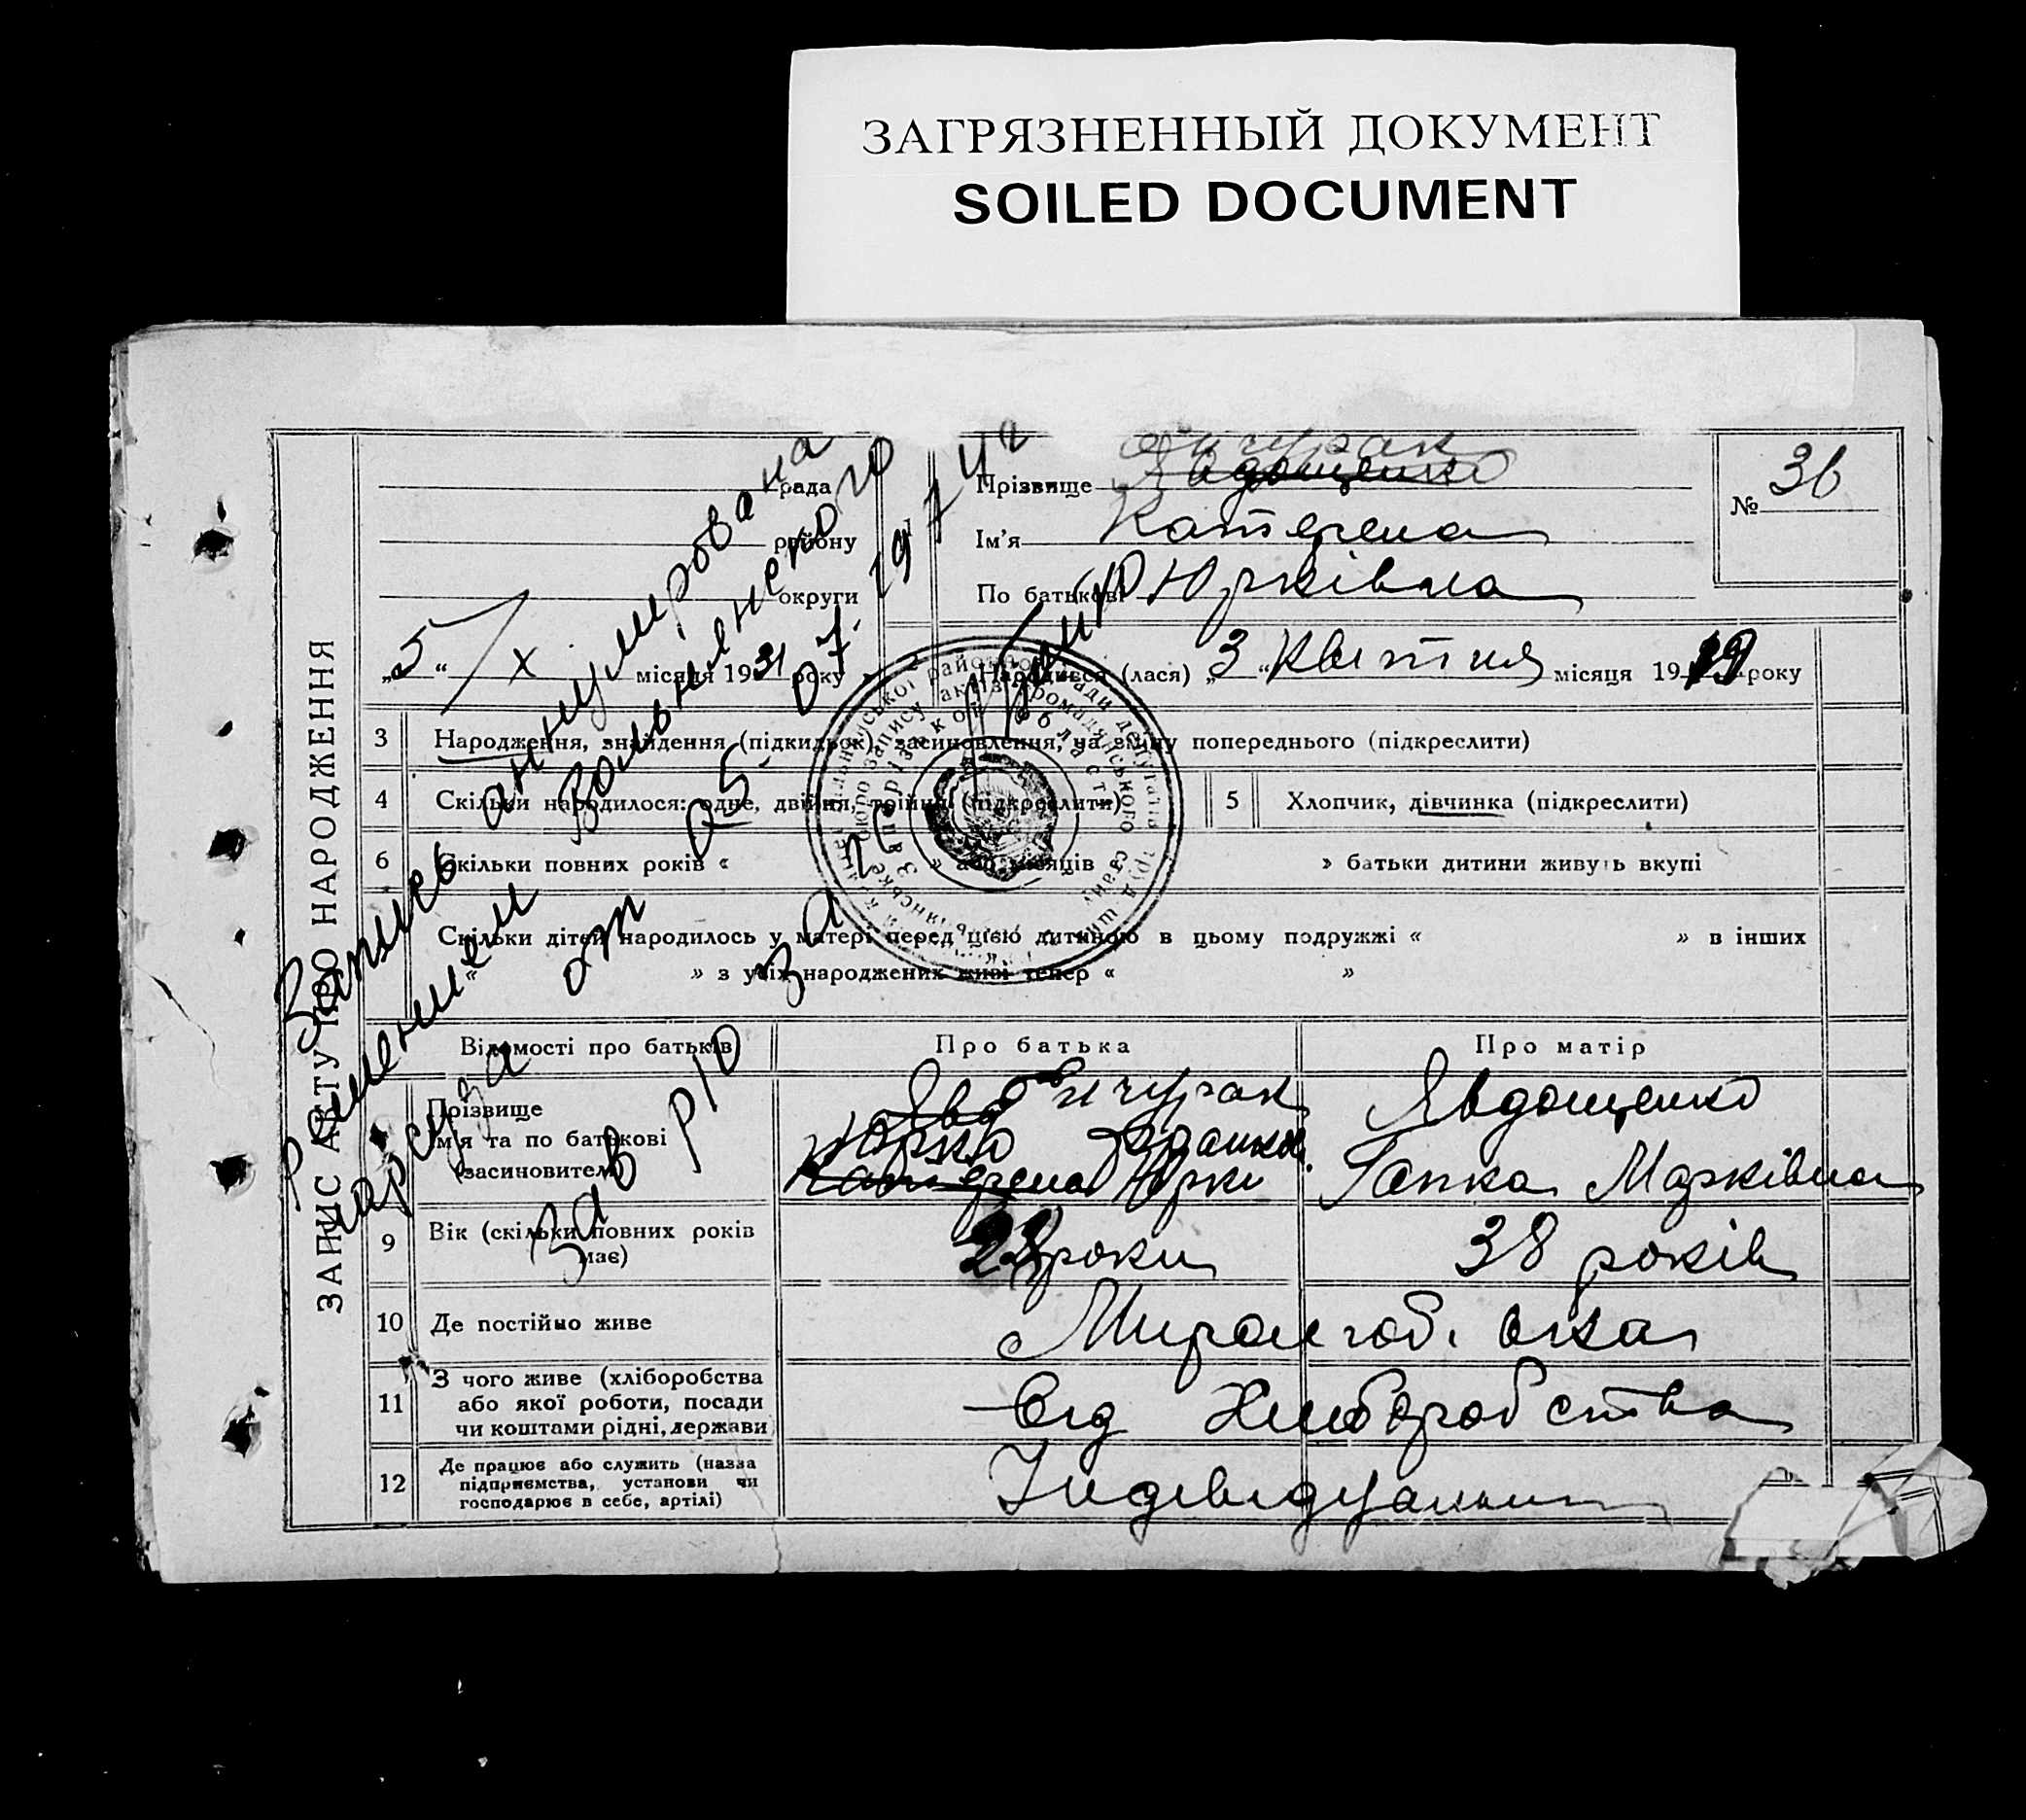 ЗАГРЯЗНЕННЫЙ ДОКУМЕНТ
SOILED DOCUMENT
ЗАПИС АКТУ ПРО НАРОДЖЕННЯ
рада
району
округи
„5“ / X місяця 1931 року
Прізвище Явдощенко
Ім'я Катерена
По батькові Юрківна
№ 36
Народився (лася) „3“ Квитня місяця 1919 року
3 Народження, знайдення (підкидьок), засиновлення, на зміну попереднього (підкреслити)
4 Скільки народилося: одне, двійня, трійня (підкреслити)
5 Хлопчик, дівчинка (підкреслити)
6 Скільки повних років « » або місяців » батьки дитини живуть вкупі
Скільки дітей народилось у матері перед цією дитиною в цьому подружжі « » в інших
« » з усіх народжених живі тепер « »
Запись аннулирована
Решением Вольнянского
нарсуда от 25.07.197
Зав р/о загс
Відомості про батьків
Про батька
Про матір
Прізвище
ім'я та по батькові
(засиновителі)
Явд
Юрко
Катерена Юрк
Явдощенко
Гапка Марківна
9 Вік (скільки повних років має)
роки
38 років
10 Де постійно живе
11 З чого живе (хліборобства
або якої роботи, посади
чи коштами рідні, держави
Від Хлиборобства
12 Де працює або служить (назва
підприємства, установи чи
господарює в себе, артілі)
Індівідуальн